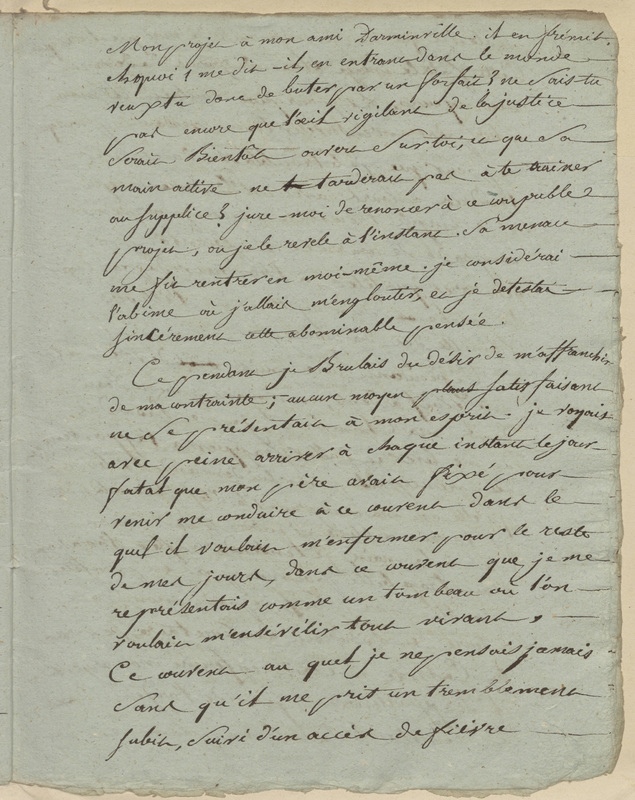 Mon projet à mon ami Darminville. il en frémit.
eh quoi ! me dit-il, en entrant dans le monde
veux tu donc debuter par un forfait ? ne sais-tu
pas encore que l'œil vigilant de la justice
serait Bientôt ouvert sur toi, et que sa
main active ne tarderait pas à te trainer
au supplice ? jure-moi de renoncer à ce coupable
projet, ou je le revele à l'instant. Sa menace
me fit rentrer en moi-même. je considérai
l'abime où j'allais m'engloutir, et je detestai
sincérement cette abominable pensée.
Ce pendant je Brulais du désir de m'affranchir
de ma contrainte ; aucun moyen plaus satisfaisant
ne se présentait à mon esprit. je voyais
avec peine arriver à chaque instant le jour
fatal que mon père avait fixé pour
venir me conduire à ce couvent dans le
quel il voulait m'enfermer pour le reste
de mes jours, dans ce couvent que je me
représentois comme un tombeau ou l'on
voulait m'ensévélir tout vivant,
Ce couvent au quel je ne pensois jamais
sans qu'il me prit un tremblement
subit, suivi d'un accès de fièvre